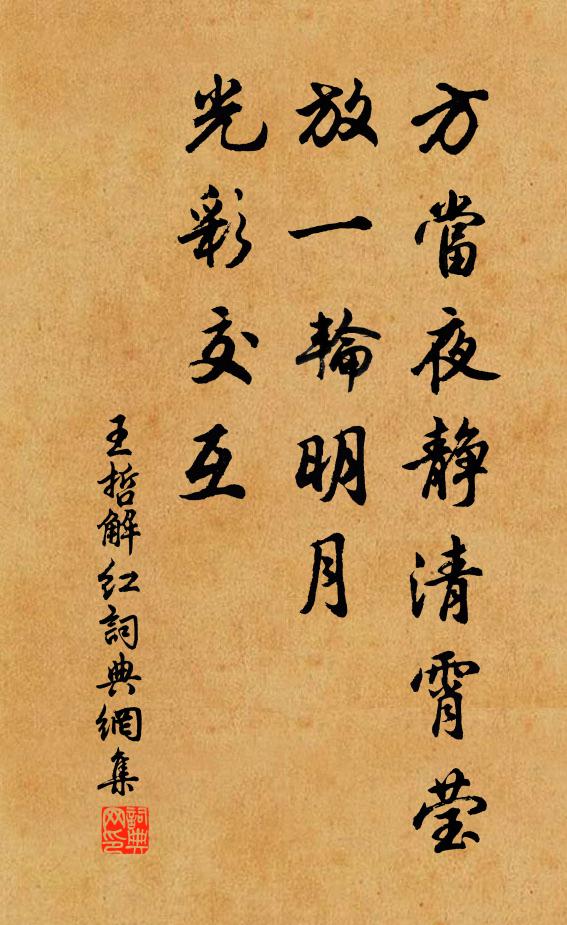 方當夜静清霄莹
放一輪明月
光彩交互
王哲解红詞典網集
詞典网印